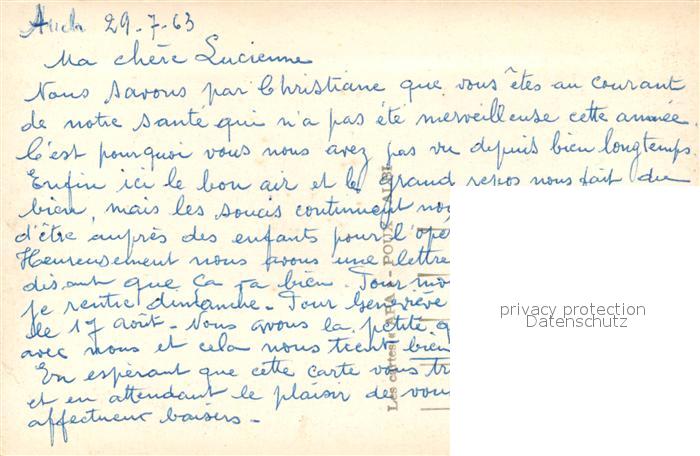 Auch 29-7-63
Ma chère Lucienne
Nous savons par Christiane que vous êtes au courant
de notre santé qui n'a pas été merveilleuse cette année.
C'est pourquoi vous nous avez pas vu depuis bien longtemps.
Enfin ici le bon air et le grand repos nous fait du
bien, mais les soucis continuent
d'être auprès des enfants pour l'opé
Heureusement nous avons une lettre
disant que ça va bien. Pour moi
je rentre dimanche. Pour Geneviève
le 17 août. Nous avons la petite
avec nous et cela nous tient bien
En espérant que cette carte vous tr
et en attendant le plaisir de vou
affectueux baisers.
Les cartes "APA" - POUX - ALBI
privacy protection
Datenschutz